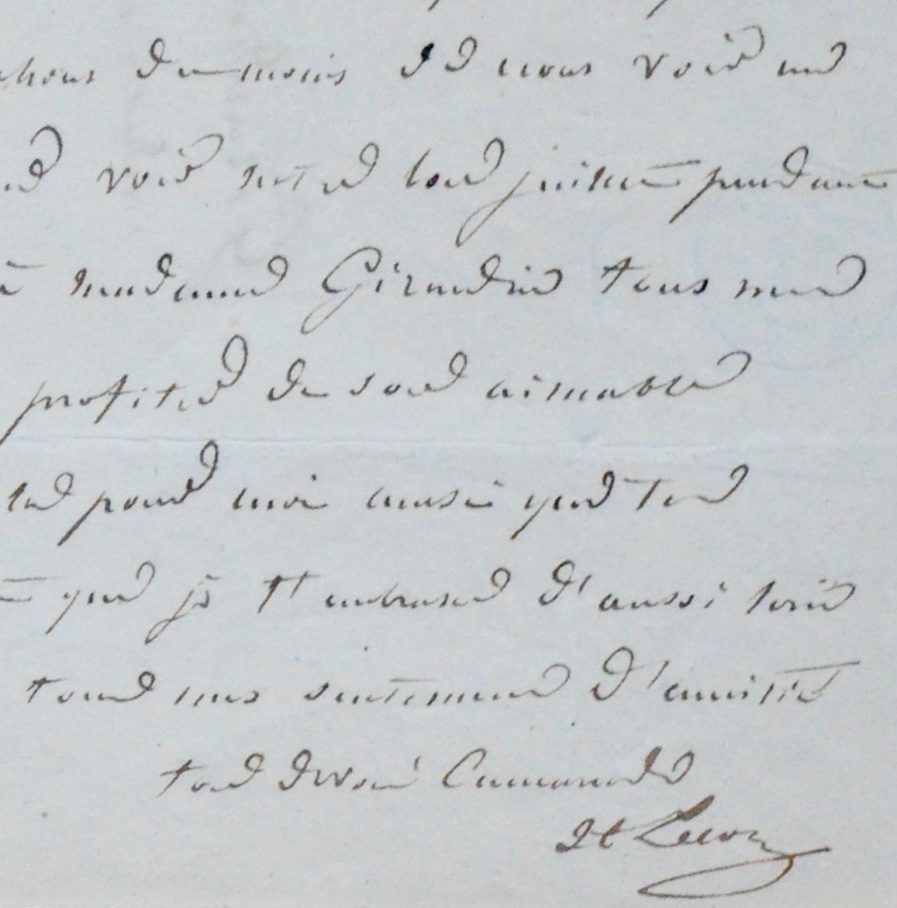 du moins de nous voir une
voir notre bon pendant
à madame Girardin tous mes
profiter de son aimable
pour moi ainsi que ton
que je t'embrasse d'aussi loin
tout mes sentiment d'amitié
ton dévoué Camarade